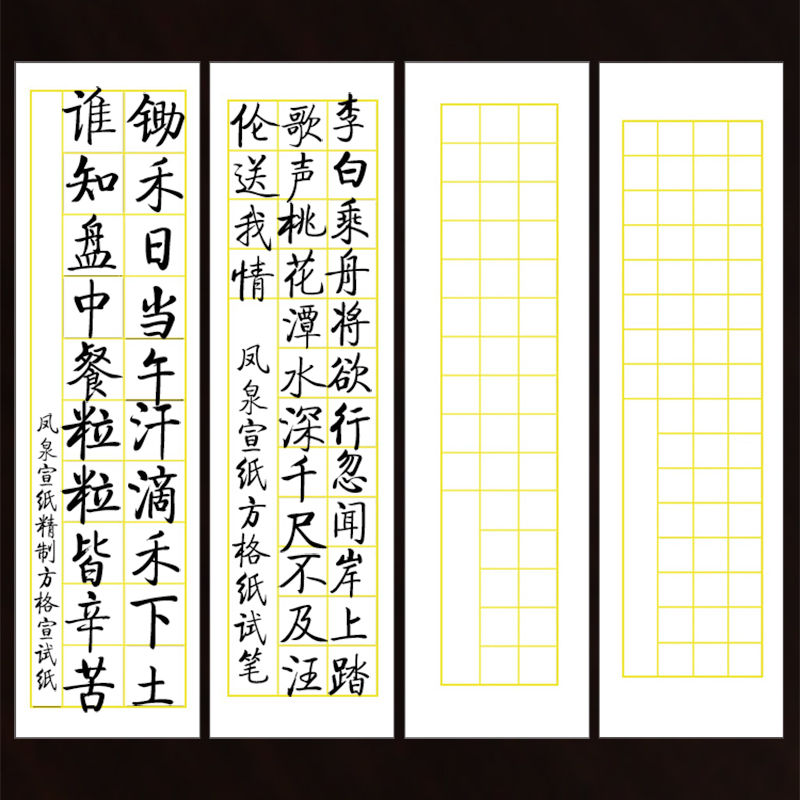 锄禾日当午汗滴禾下土
谁知盘中餐粒粒皆辛苦
凤泉宣纸精制方格宣试纸
李白乘舟将欲行忽闻岸上踏
歌声桃花潭水深千尺不及汪
伦送我情 凤泉宣纸方格纸试笔